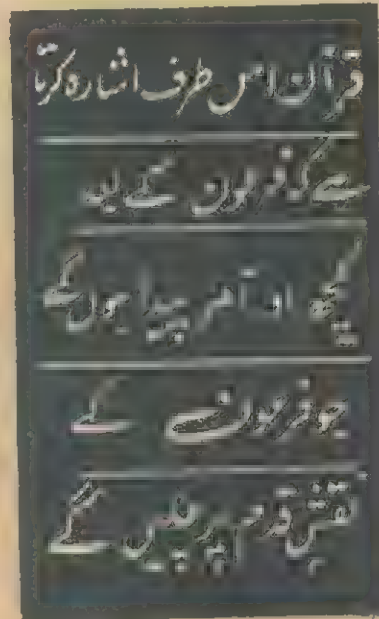 قرآن اس طرف اشارہ کرتا
ہے کہ فرعون کے بعد
کچھ اور آمر پیدا ہوں گے
جو فرعون کے
نقش قدم پر چلیں گے